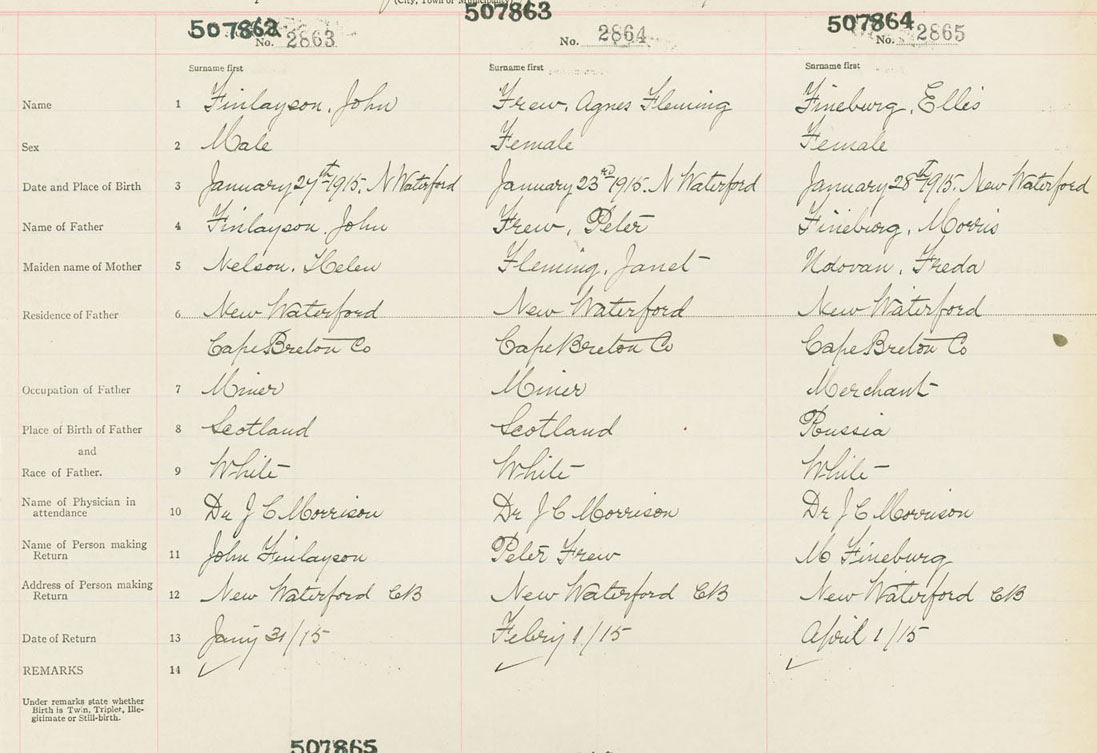 (City, Town or Municipality)
507862 507863 507864
No. 2863 No. 2864 No. 2865
Surname first Surname first Surname first
Name 1 Finlayson, John Frew, Agnes Fleming Fineburg, Ellis
Sex 2 Male Female Female
Date and Place of Birth 3 January 27th 1915. N Waterford January 23rd 1915. N Waterford January 28th 1915. New Waterford
Name of Father 4 Finlayson, John Frew, Peter Fineburg, Morris
Maiden name of Mother 5 Nelson, Helen Fleming, Janet Udovan, Freda
Residence of Father 6 New Waterford New Waterford New Waterford
Cape Breton Co Cape Breton Co Cape Breton Co
Occupation of Father 7 Miner Miner Merchant
Place of Birth of Father 8 Scotland Scotland Russia
and
Race of Father. 9 White White White
Name of Physician in
attendance 10 Dr J C Morrison Dr J C Morrison Dr J C Morrison
Name of Person making
Return 11 John Finlayson Peter Frew M Fineburg
Address of Person making
Return 12 New Waterford CB New Waterford CB New Waterford CB
Date of Return 13 Jany 31/15 Febry 1/15 April 1/15
REMARKS 14
Under remarks state whether
Birth is Twin, Triplet, Ille-
gitimate or Still-birth.
507865